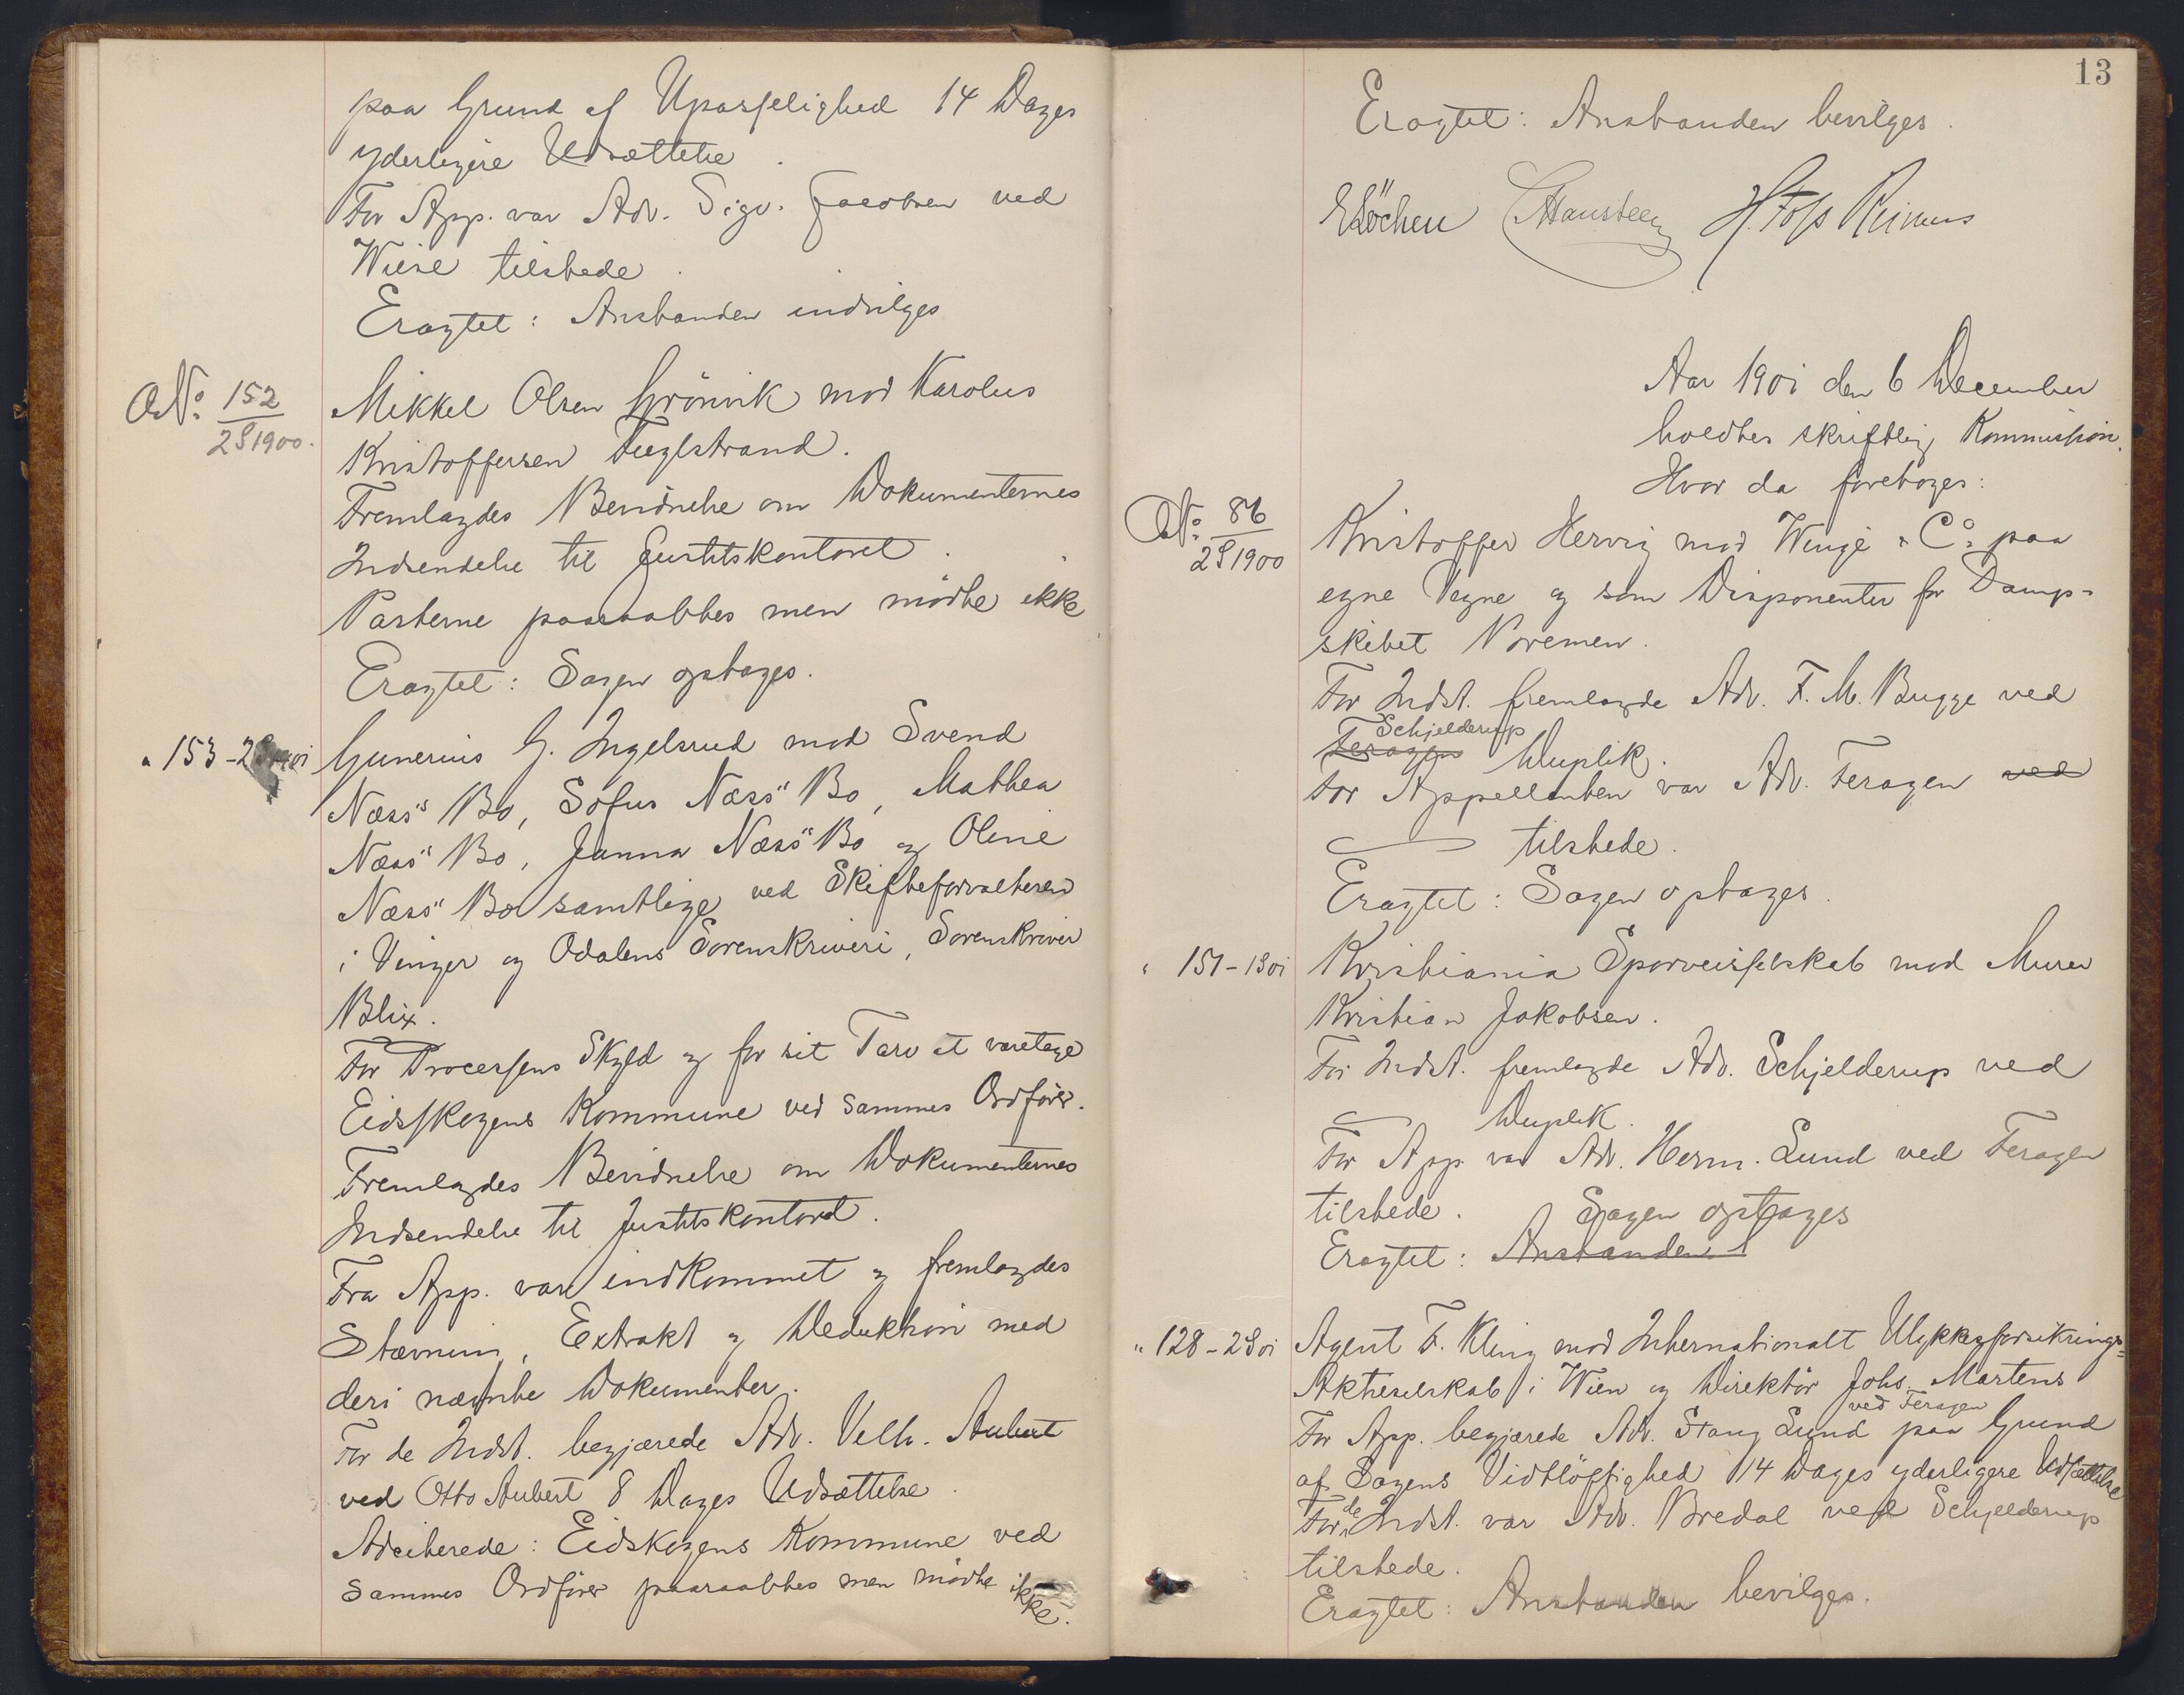 paa Grund af Upasselighed 14 Dages
yderligere Udsættelse.
For App. var Adv. Sigv. Jacobsen ved
Wiese tilstede.
Eragtet: Anstanden indvilges
O No. 152
2S 1900.
Mikkel Olsen Grönvik mod Karolus
Kristoffersen Fuglstrand.
Fremlagdes Bevidnelse om Dokumenternes
Indsendelse til Justitskontoret.
Parterne paaraabtes men mödte ikke
Eragtet: Sagen optages.
" 153 - 2S
Gunerius G. Ingelsrud mod Svend
Næss" Bo, Sofus Næss" Bo, Mathea
Næss" Bo, Janna Næss" Bo og Oline
Næss" Bo samtlige ved Skifteforvalteren
i Vinger og Odalens Sorenskriveri, Sorenskriver
Blix.
For Processens Skyld og for sit Tarv at varetage
Eidsskogens Kommune ved sammes Ordförer.
Fremlagdes Bevidnelse om Dokumenternes
Indsendelse til Justitskontoret.
Fra App. var indkommet og fremlagdes
Stævning, Extrakt og Deduktion med
deri nævnte Dokumenter.
For de Indst. begjærede Adv. Vilh. Aubert
ved Otto Aubert 8 Dages Udsættelse.
Adciterede: Eidskogens Kommune ved
sammes Ordförer paaraabtes men mödte ikke.
13
Eragtet: Anstanden bevilges.
ELöchen CHansteen H. Foss Reimers
Aar 1901 den 6 December
holdtes skriftlig Kommission.
Hvor da foretoges:
O No. 86
2S 1900
Kristoffer Hervig mod Winge & Co. paa
egne Vegne og som Disponenter for Damp-
skibet Noremen.
For Indst. fremlagde Adv. F. M. Bugge ved
Schjelderup
Feragen Duplik.
For Appellanten var Adv. Feragen ved
tilstede.
Eragtet: Sagen optages.
" 151 - 1S01
Kristiania Sporveisselskab mod Murer
Kristian Jakobsen.
For Indst. fremlagde Adv. Schjelderup ved
Duplik.
For App. var Adv. Herm. Lund ved Feragen
tilstede. Sagen optages
Eragtet: Anstanden
" 128 - 2S01
Agent F. Kling mod Internationalt Ulykkesforsikrings-
Aktieselskab i Wien og Direktör Johs. Martens
ved Feragen
For App. begjærede Adv. Stang Lund paa Grund
af Sagens Vidtlöftighed 14 Dages yderligere Udsættelse
For de Indst. var Adv. Bredal ved Schjelderup
tilstede.
Eragtet: Anstanden bevilges.